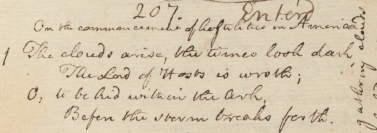 207. Enter'd
On the commencement of hostilities in America
1 The clouds arise, the times look dark
The Lord of Hosts is wroth;
O, to be hid within the Ark,
Before the storm breaks forth.
gathering clouds